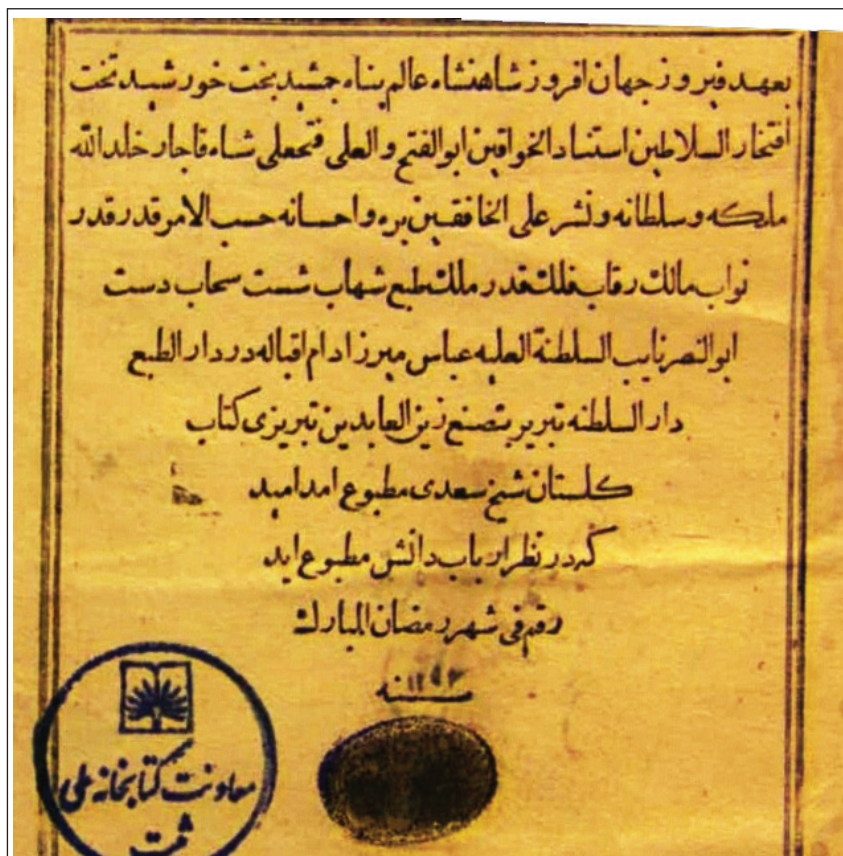 بعهد فیروز جهان افروز شاهنشاه عالم پناه جمشید بخت خورشید تخت
افتخار السلاطین استناد الخواقین ابوالفتح والعلی فتحعلی شاه قاجار خلدالله
ملکه و سلطانه و نشر علی الخافقین بره و احسانه حسب الامر قدر قدر
نواب مالک رقاب فلک قدر ملک طبع شهاب شست سحاب دست
ابوالنصر نایب السلطنة العلیه عباس میرزا دام اقباله در دار الطبع
دار السلطنه تبریز بتصنع زین العابدین تبریزی کتاب
کلستان شیخ سعدی مطبوع امد امید
که در نظر ارباب دانش مطبوع اید
رقم فی شهر رمضان المبارک
سنه
معاونت کتابخانه ملی
ثبت